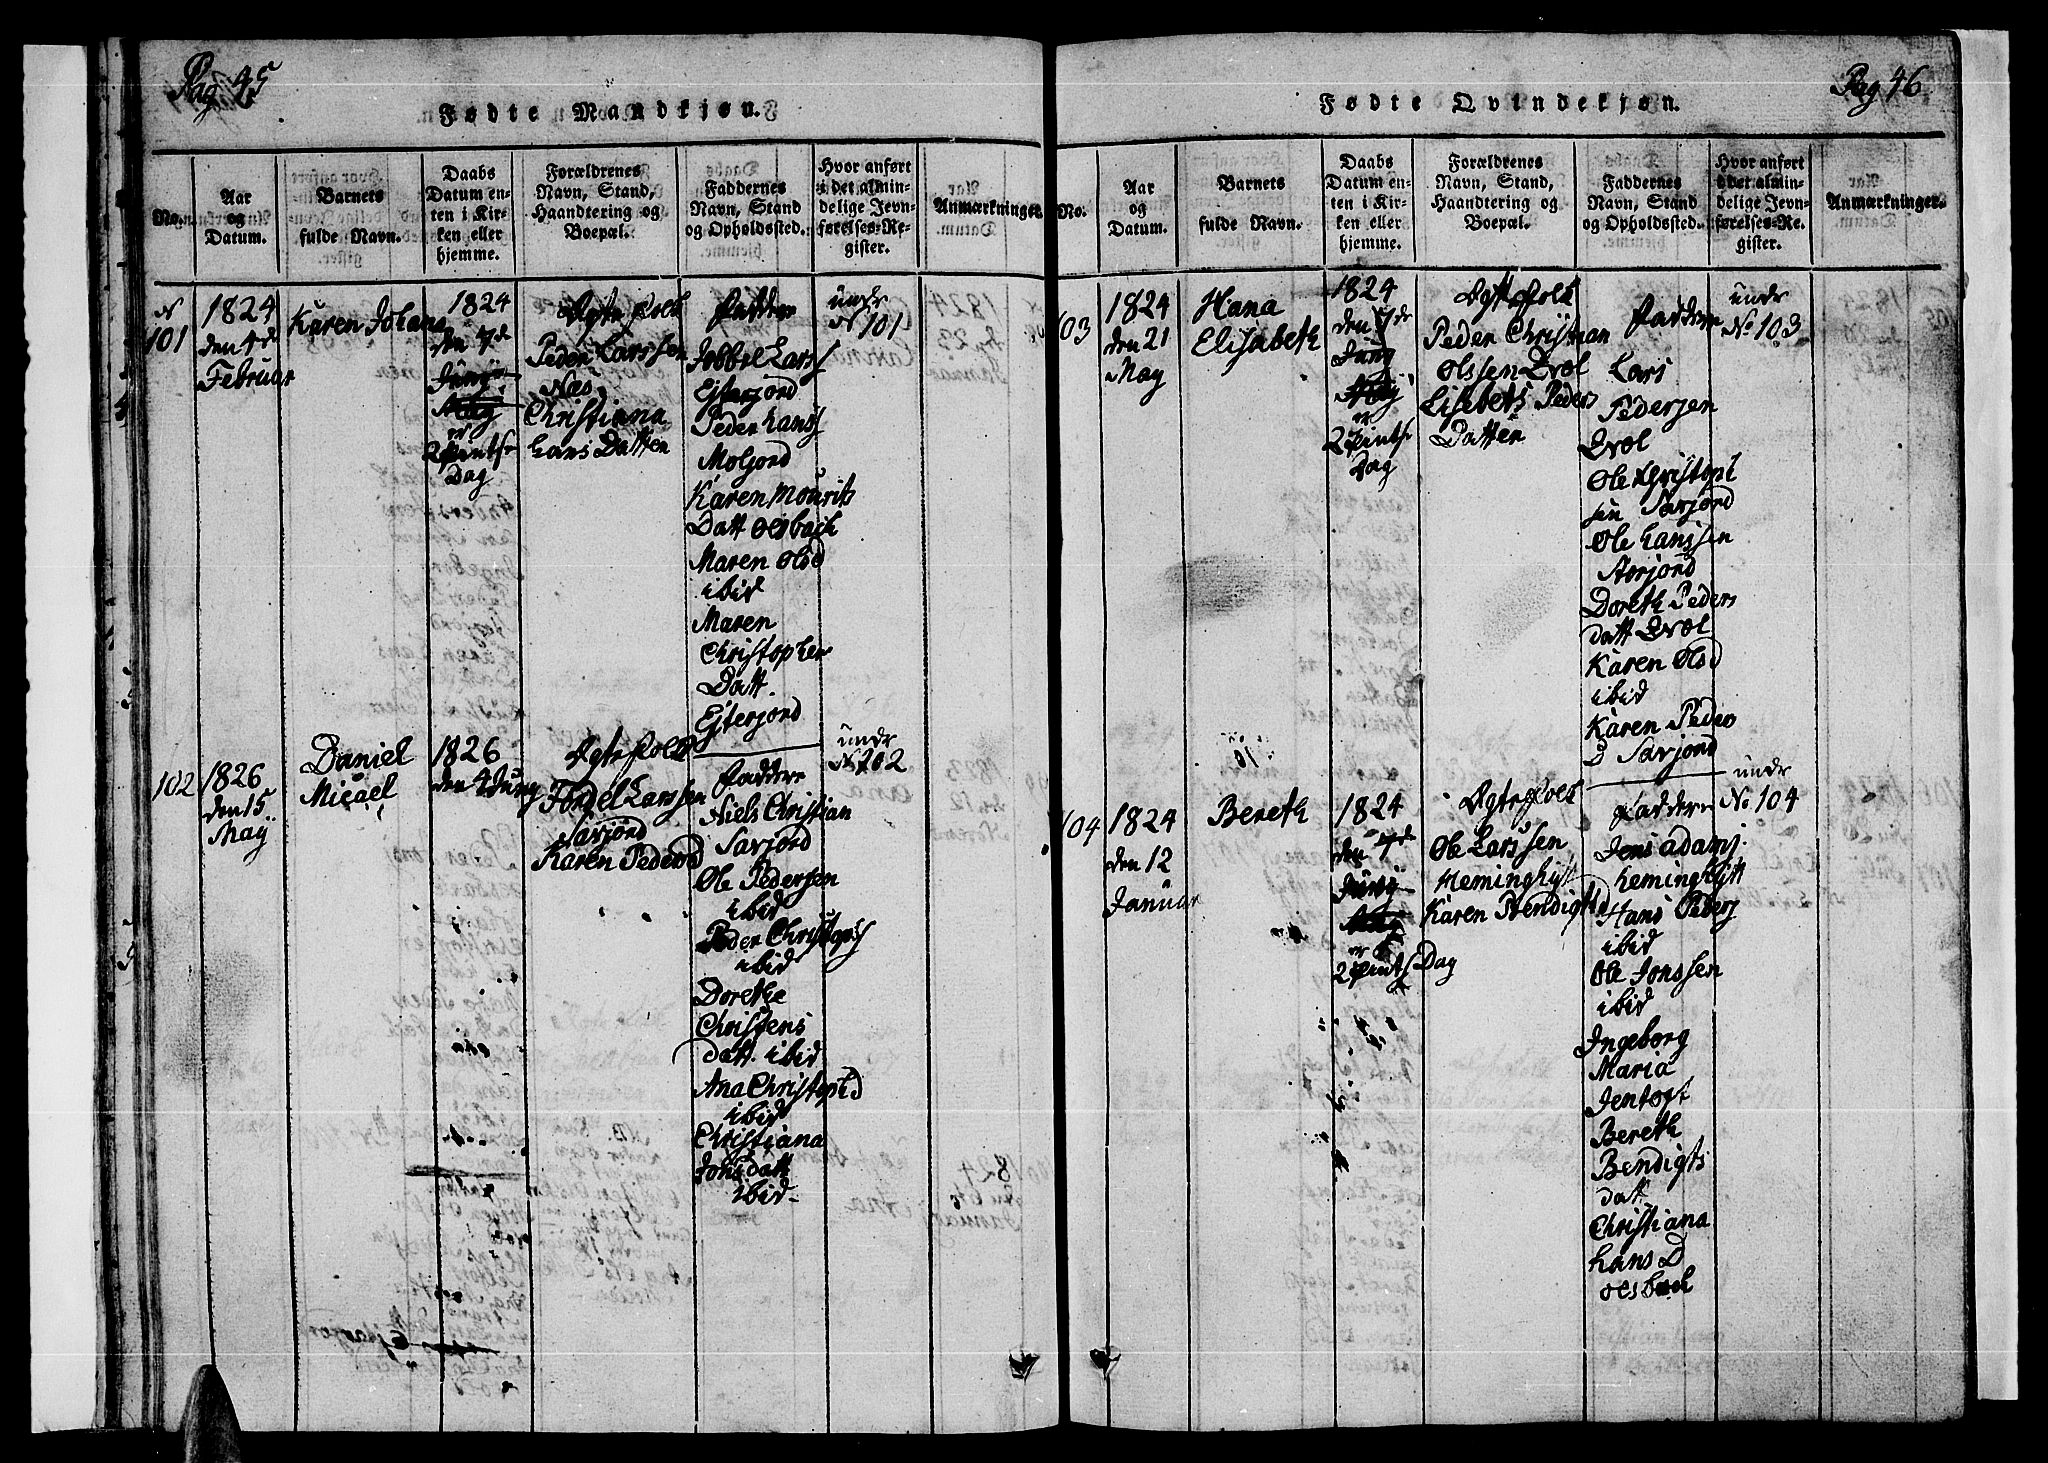 Pag 45
Fødte Mandkjøn.
No.
Aar
og
Datum.
Barnets
fulde Navn.
Daabs
Datum en-
ten i Kir-
ken eller
hjemme.
Forældrenes
Navn, Stand,
Haandtering og
Boepæl.
Faddernes
Navn, Stand
og Opholdssted.
Hvor anført
i det almin-
delige Jevn-
førelses-Re-
gister.
Anmærkninger.
N
101
1824
den 4de
Februar
Karen Johana
1824
den 7de
Juny
er
2 Pintse
Dag
Ægte Folk
Peder Larssen
Næs
Christiana
Lars Datter
Faddere
Jobbel Lars
Ejterjord
Peder Hans
Moljord
Karen Mourits
Datt Olsbach
Maren Olsd
ibid
Maren
Christopher
Datt.
Ejterjord
under
N 101
102
1826
den 15
May
Daniel
Micael
1826
den 4 Juny
Ægte Folk
Tordel Larssen
Savjord
Karen Pedersd
Faddere
Niels Christian
Savjord
Ole Pedersen
ibid
Peder Christophs
ibid
Dorethe
Christens
datt. ibid
Ana Christoph D
ibid
Christiana
Jons datt
ibid
under
N 102
Pag 46
Fødte Qvindekjøn.
No.
Aar
og
Datum.
Barnets
fulde Navn.
Daabs
Datum en-
ten i Kir-
ken eller
hjemme.
Forældrenes
Navn, Stand,
Haandtering og
Boepæl.
Faddernes
Navn, Stand
og Opholdssted.
Hvor anført
i det almin-
delige Jevn-
førelses-Re-
gister.
Anmærkninger.
103
1824
den 21
May
Hana
Elisabeth
1824
den 7de
Juny
er
2 Pintse
Dag
Ægte Folk
Peder Christian
Olssen Qvol
Lisebets Peders
Datter
Faddere
Lars
Pedersen
Qvol
Ole Christoph
sen Savjord
Ole Hanssen
Aorjord
Doreth Peders
datt Qvol
Karen Olsd
ibid
Karen Peders
D Savjord
under
No 103
104
1824
den 12
Januar
Bereth
1824
den 7de
Juny
er
2 Pints Dag
Ægte Folk
Ole Larssen
Heminghyt
Karen Bendigtsd
Faddere
Jens adams
heminghytt
Hans Peders
ibid
Ole Jonssen
ibid
Ingeborg
Maria
Jentoft
Bereth
Bendigts
datt
Christiana
hans D
olsbach
under
No 104